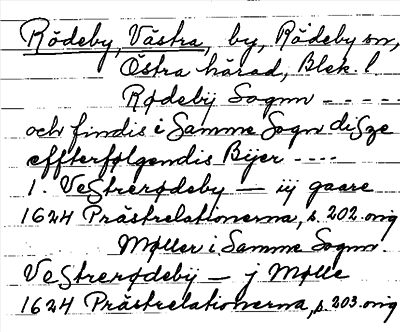 Rödeby, Västra, by, Rödeby sn,
Östra härad, Blek. l
Rødebÿ Sogn -----
och findis i Samme Sogn disze
effterfølgendis Bÿer ----
1. Vestrerødeby — iij gaare
1624 Prästrelationerna, s. 202. orig
Møller i Samme Sogn.
Vestrerødebÿ — j Mølle
1624 Prästrelationerna, s. 203. orig